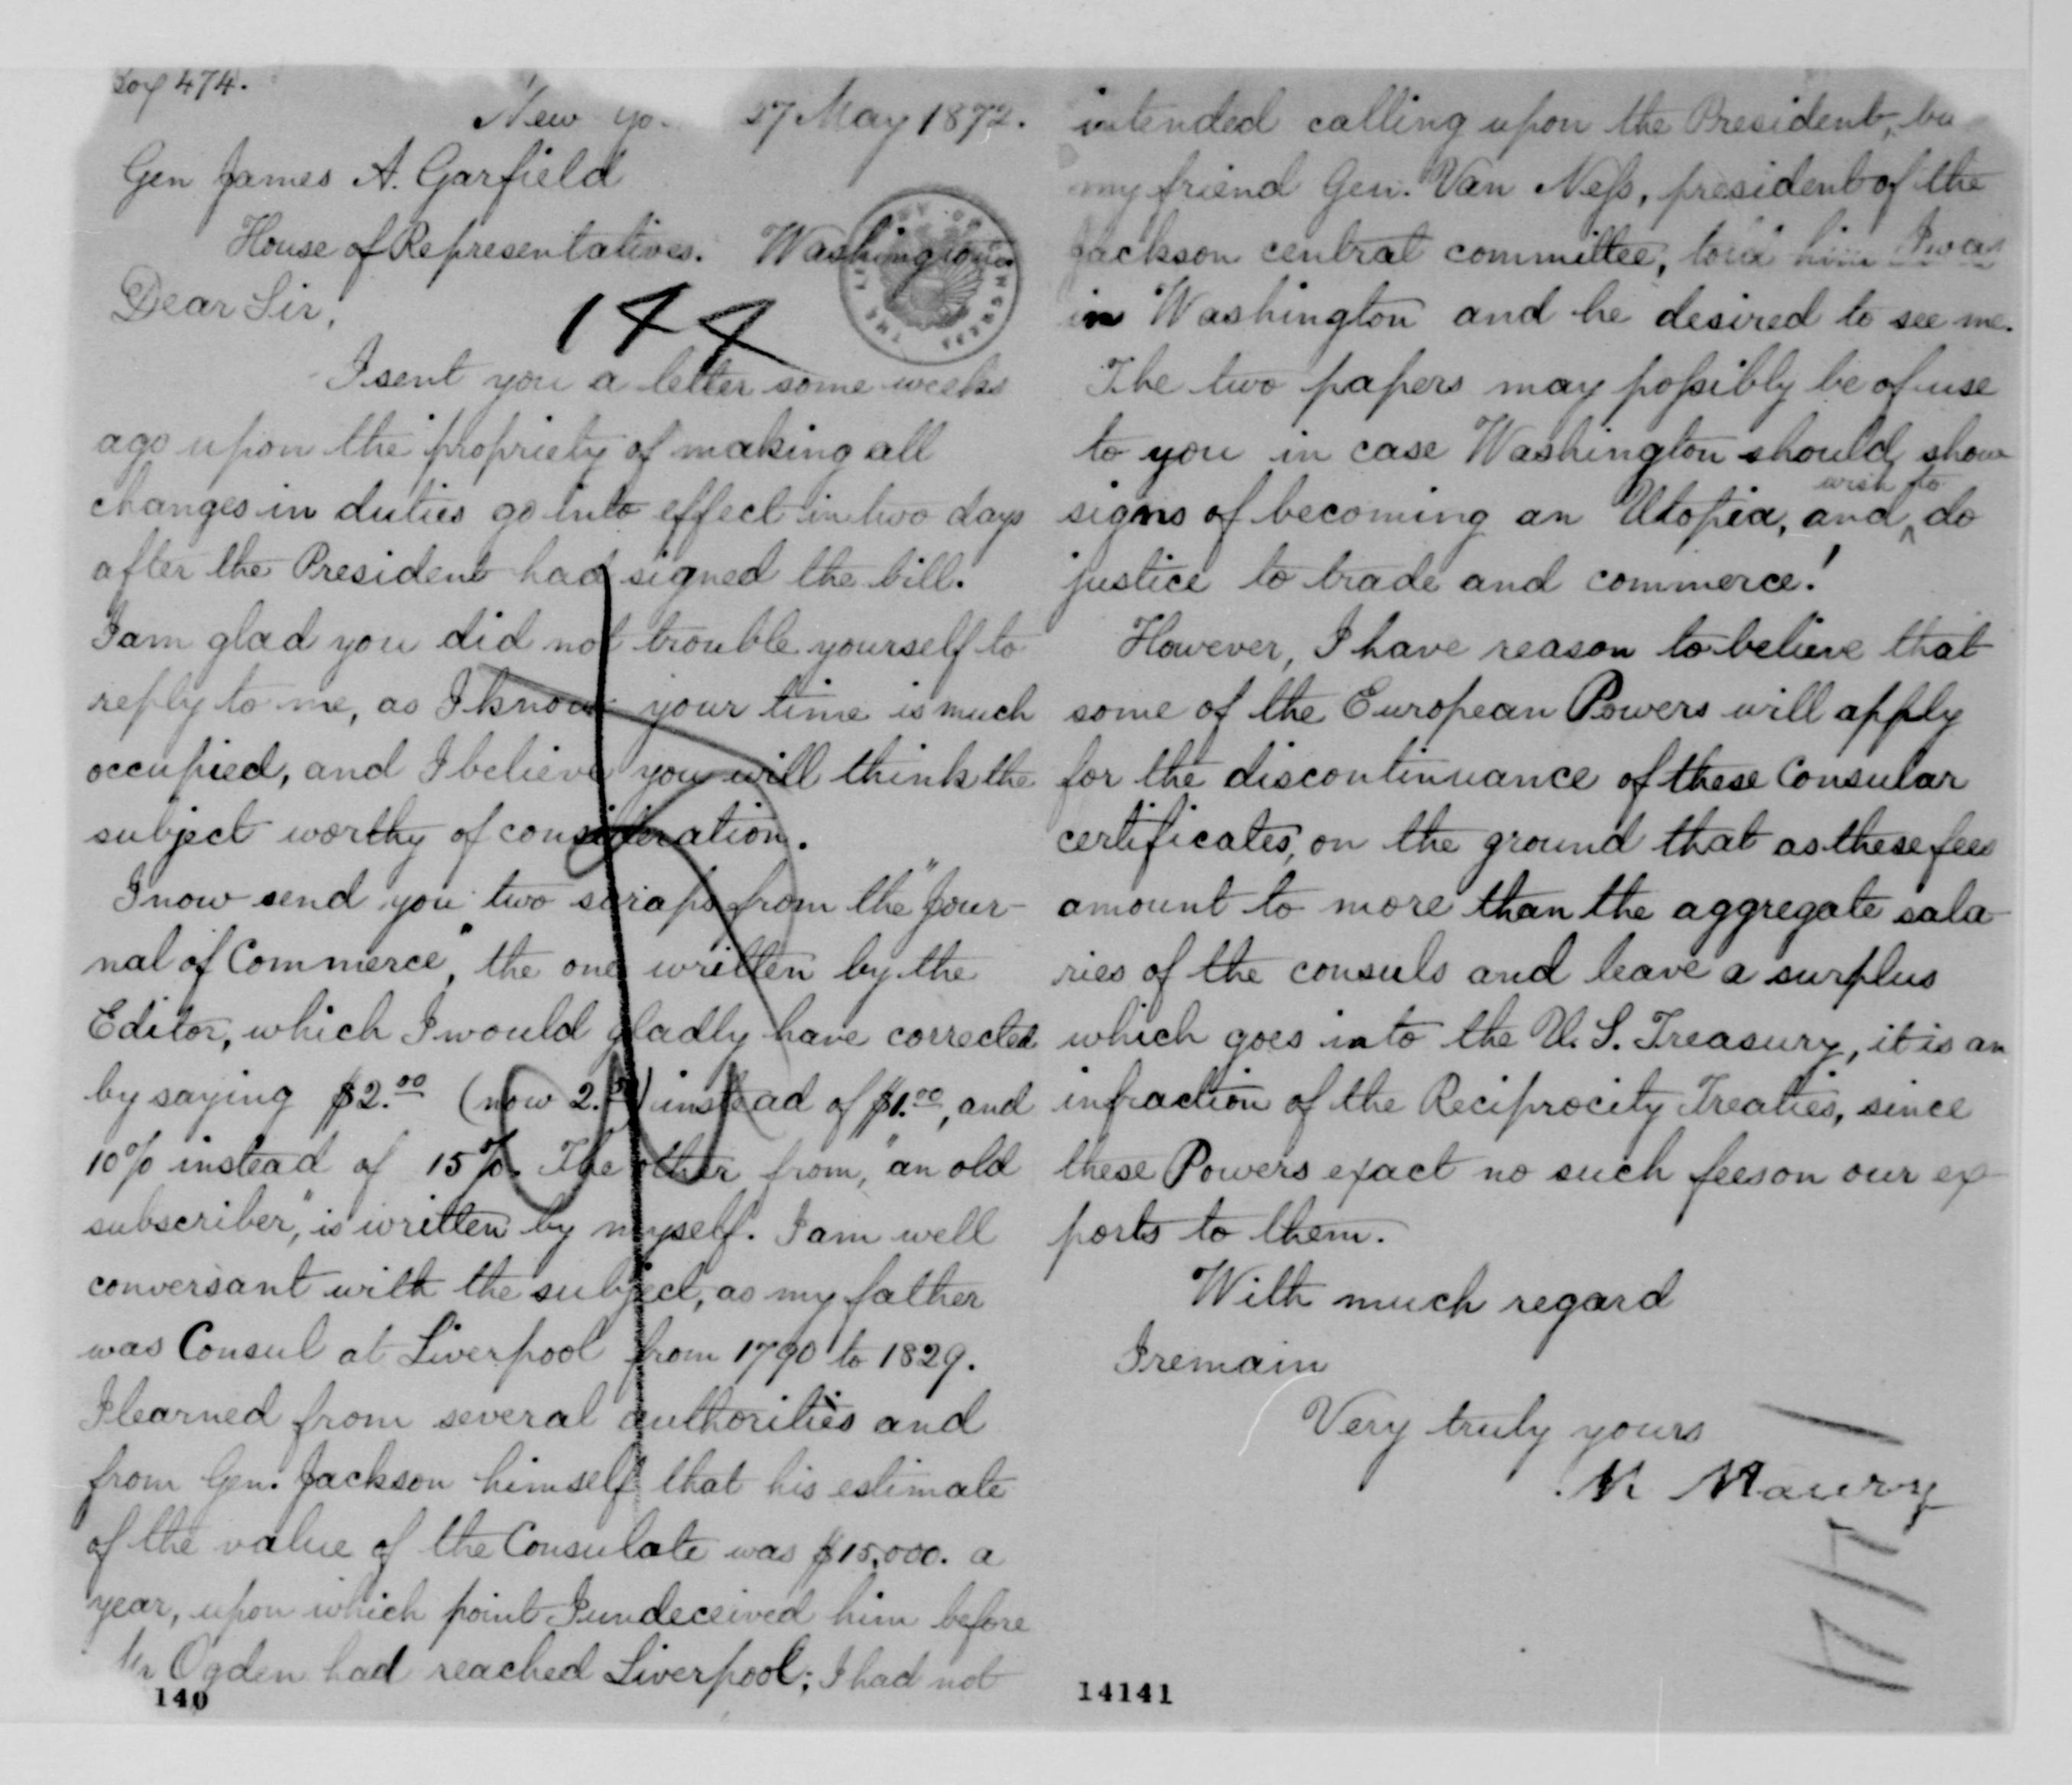 Box 474.
New Yo 27 May 1872.
Gen James A. Garfield
House of Representatives. Washington
Dear Sir,
144
I sent you a letter some weeks
ago upon the propriety of making all
changes in duties go into effect in two days
after the President had signed the bill.
I am glad you did not trouble yourself to
reply to me, as I know your time is much
occupied, and I believe you will think the
subject worthy of consideration.
I now send you two scraps from the "Jour-
nal of Commerce", the one written by the
Editor, which I would gladly have corrected
by saying $2.00 (now 2.50) instead of $1.00, and
10% instead of 15%. The other from, "an old
subscriber", is written by myself. I am well
conversant with the subject, as my father
was Consul at Liverpool from 1790 to 1829.
I learned from several authorities and
from Gen. Jackson himself that his estimate
of the value of the Consulate was $15,000. a
year, upon which point I undeceived him before
Mr Ogden had reached Liverpool; I had not
140
intended calling upon the President, bu
my friend Gen. Van Ness, president of the
Jackson central committee, told him I was
in Washington and he desired to see me.
The two papers may possibly be of use
to you in case Washington should show
signs of becoming an Utopia, and ^ wish to do
justice to trade and commerce!
However, I have reason to believe that
some of the European Powers will apply
for the discontinuance of these Consular
certificates, on the ground that as these fees
amount to more than the aggregate sala-
ries of the consuls and leave a surplus
which goes into the U. S. Treasury, it is an
infraction of the Reciprocity Treaties, since
these Powers exact no such fees on our ex-
ports to them.
With much regard
I remain
Very truly yours
M Maury
14141